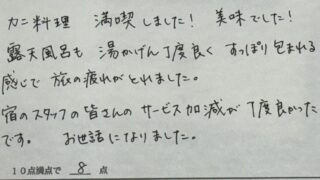 カニ料理 満喫しました! 美味でした!
露天風呂も 湯かげん丁度良く すっぽり包まれる
感じで 旅の疲れがとれました。
宿のスタッフの皆さんの サービス加減が丁度良かった
です。 お世話になりました。
10点満点で 8 点